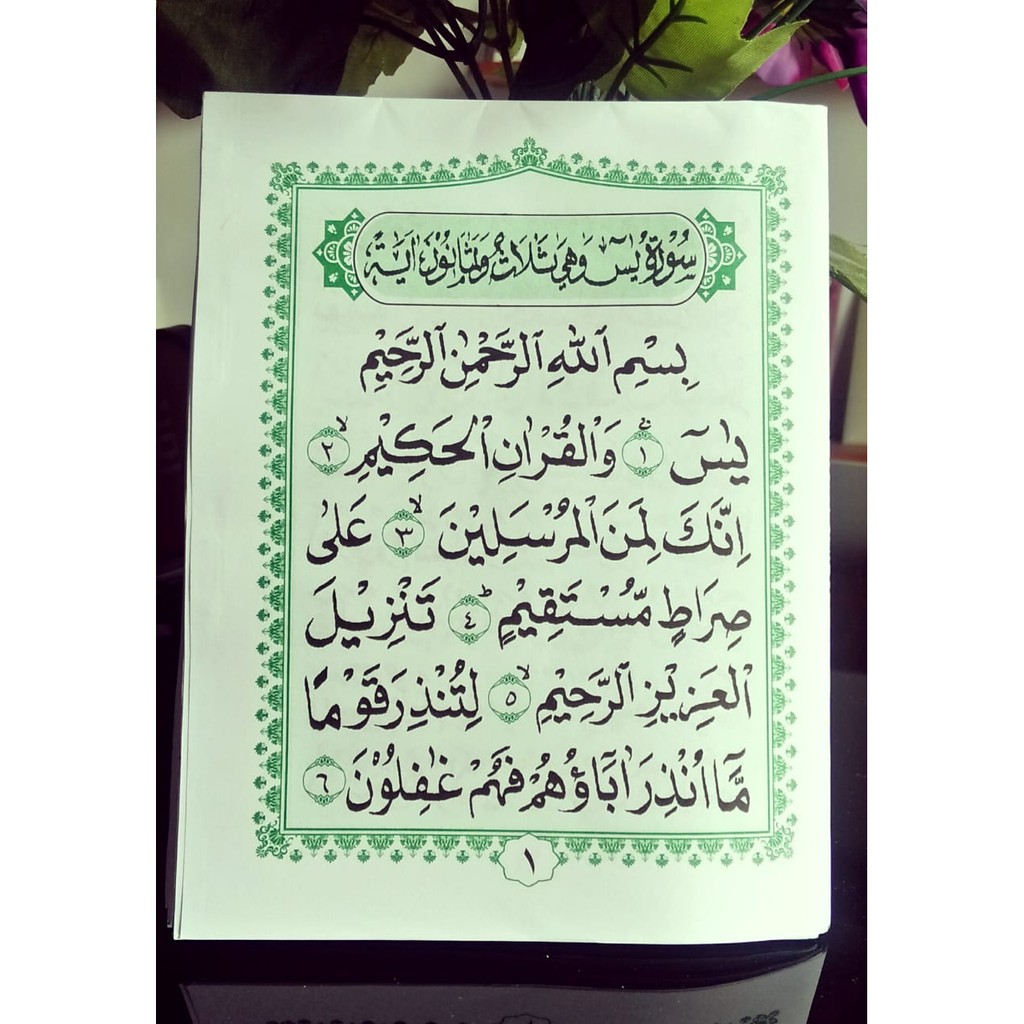 سُوْرَةُ يٰسٓ وَهِيَ ثَلَاثٌ وَثَمَانُوْنَ اٰيَةً
بِسْمِ ٱللّٰهِ ٱلرَّحْمٰنِ ٱلرَّحِيْمِ
يٰسٓ ۝١ۚ وَٱلْقُرْاٰنِ ٱلْحَكِيْمِ ۝٢ۙ
اِنَّكَ لَمِنَ ٱلْمُرْسَلِيْنَ ۝٣ۙ عَلٰى
صِرَاطٍ مُّسْتَقِيْمٍ ۝٤ۗ تَنْزِيْلَ
ٱلْعَزِيْزِ ٱلرَّحِيْمِ ۝٥ۙ لِتُنْذِرَ قَوْمًا
مَّآ اُنْذِرَ اٰبَاؤُهُمْ فَهُمْ غٰفِلُوْنَ ۝٦
١